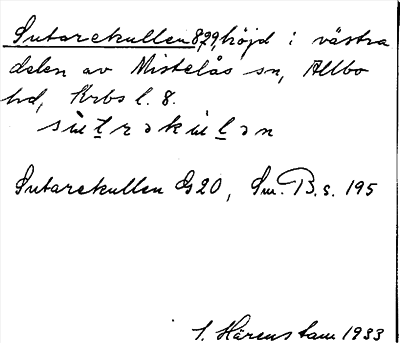 Sutarekullen 829, höjd i västra
delen av Mistelås sn, Allbo
hd, Krbs l. 8.
sùtrəkùlən
Sutarekullen G20, Sm. B. s. 195
S. Härenstam 1933